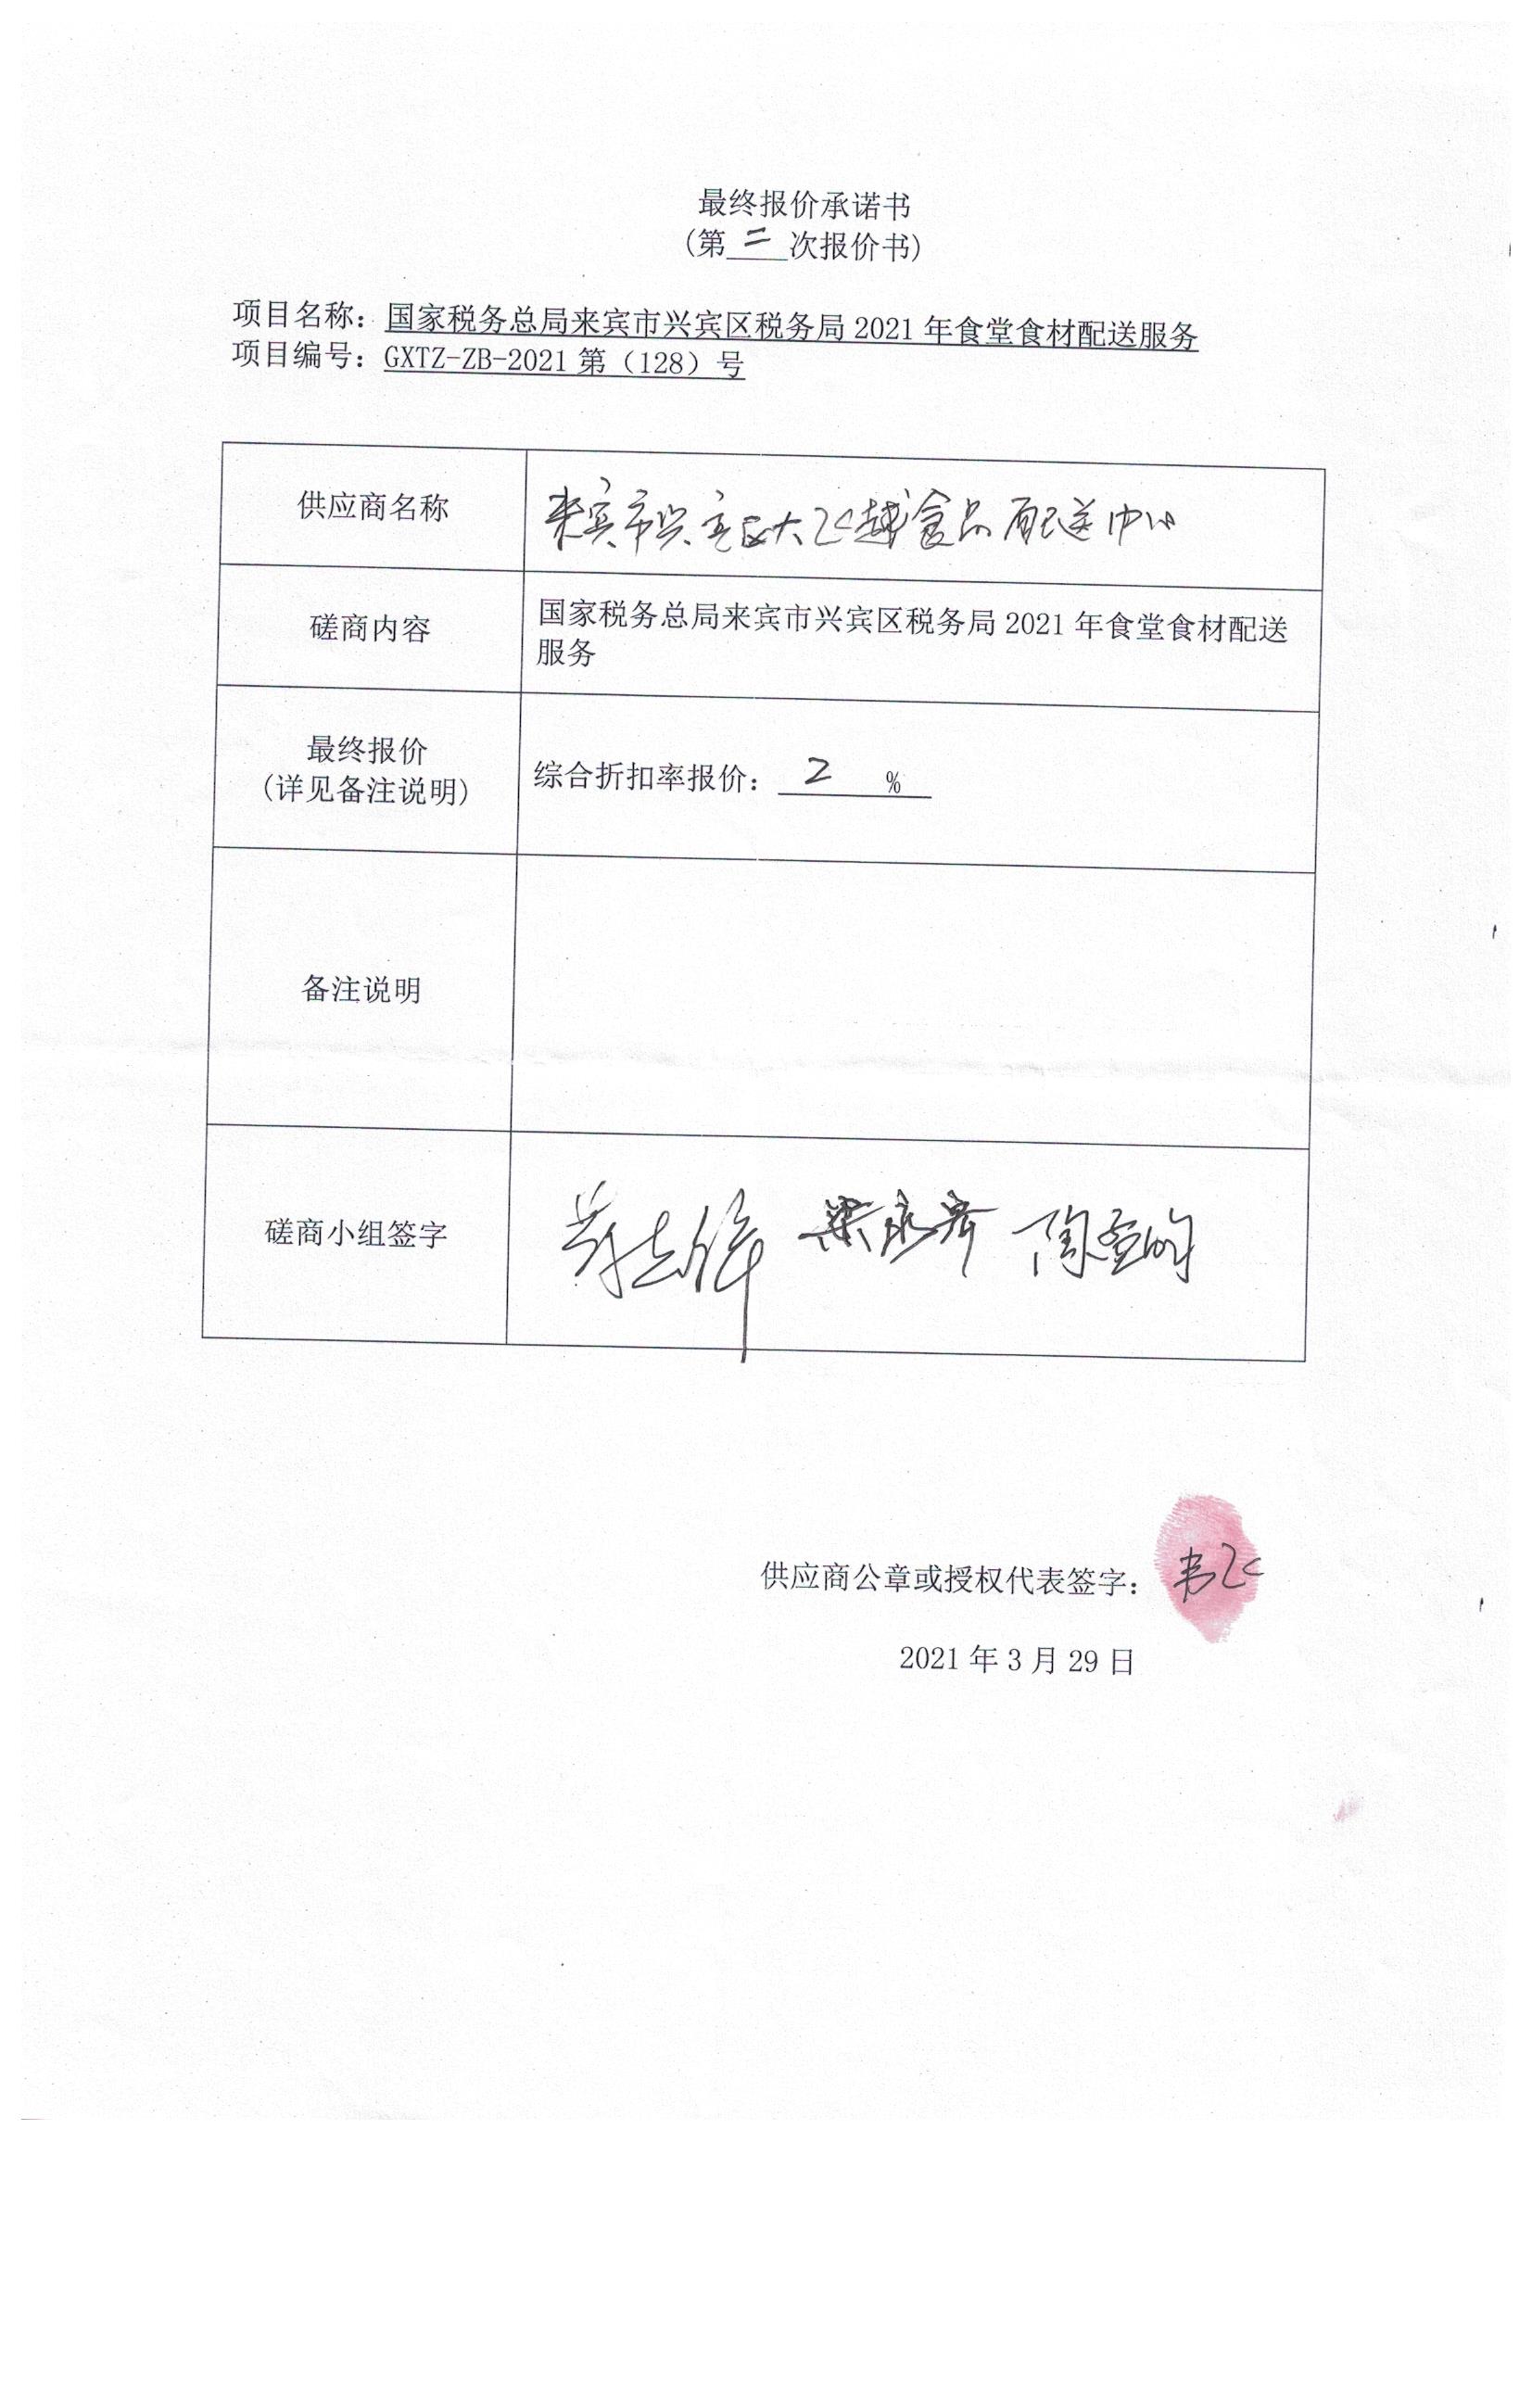 最终报价承诺书
(第二次报价书)
项目名称：国家税务总局来宾市兴宾区税务局2021年食堂食材配送服务
项目编号：GXTZ-ZB-2021第（128）号
供应商名称
来宾市兴宾区大飞越食品配送中心
磋商内容
国家税务总局来宾市兴宾区税务局2021年食堂食材配送
服务
最终报价
(详见备注说明)
综合折扣率报价：2%
备注说明
磋商小组签字
供应商公章或授权代表签字：
2021年3月29日